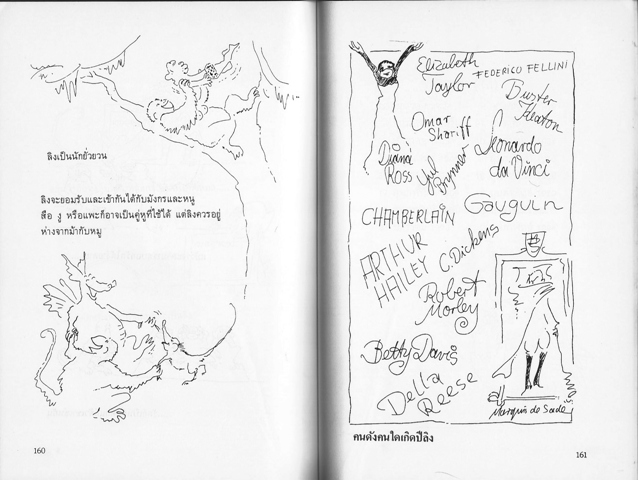 ลิงเป็นนักยั่วยวน
ลิงจะยอมรับและเข้ากันได้กับมังกรและหนู
เสือ งู หรือแพะก็อาจเป็นคู่หูที่ใช้ได้ แต่ลิงควรอยู่
ห่างจากม้ากับหมู
160
Elizabeth
Taylor
FEDERICO FELLINI
Buster
Keaton
Omar
Shariff
Diana
Ross
Yul
Brynner
Leonardo
da Vinci
CHAMBERLAIN
Gauguin
ARTHUR
HAILEY
C. Dickens
Robert
Morley
Betty Davis
Della
Reese
Marquis de Sade
คนดังคนใดเกิดปีลิง
161